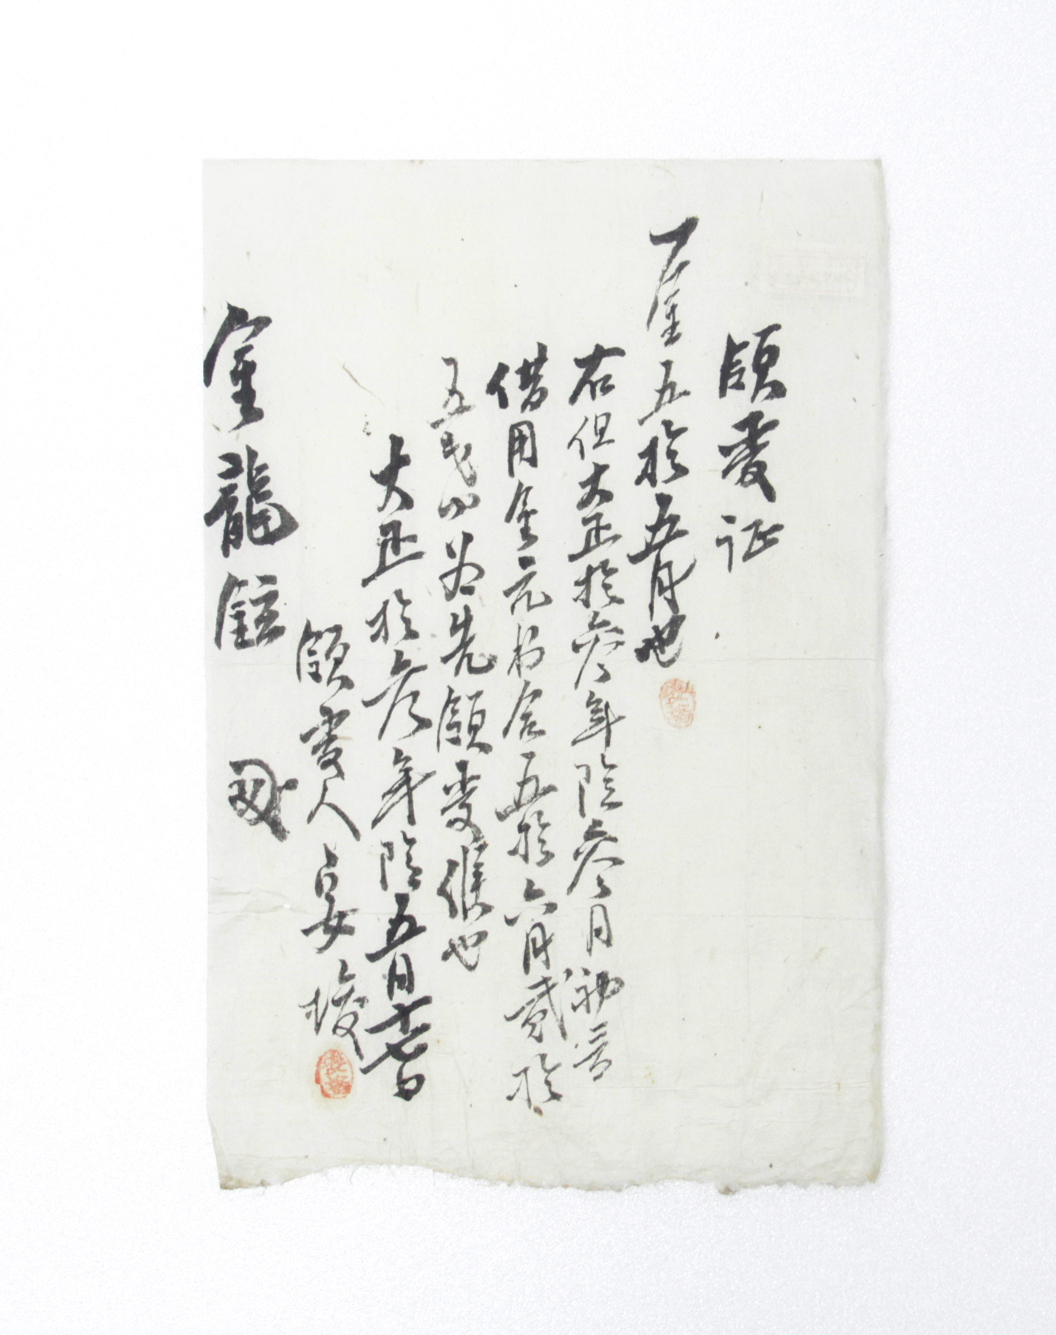 領受証
一金五拾五円也
右但大正拾参年陰参月初二日
借用金元利合五拾六円貳拾
五戋內為先領受候也
大正拾参年陰五月十七日
領受人 安 梭
金龍鉉 殿